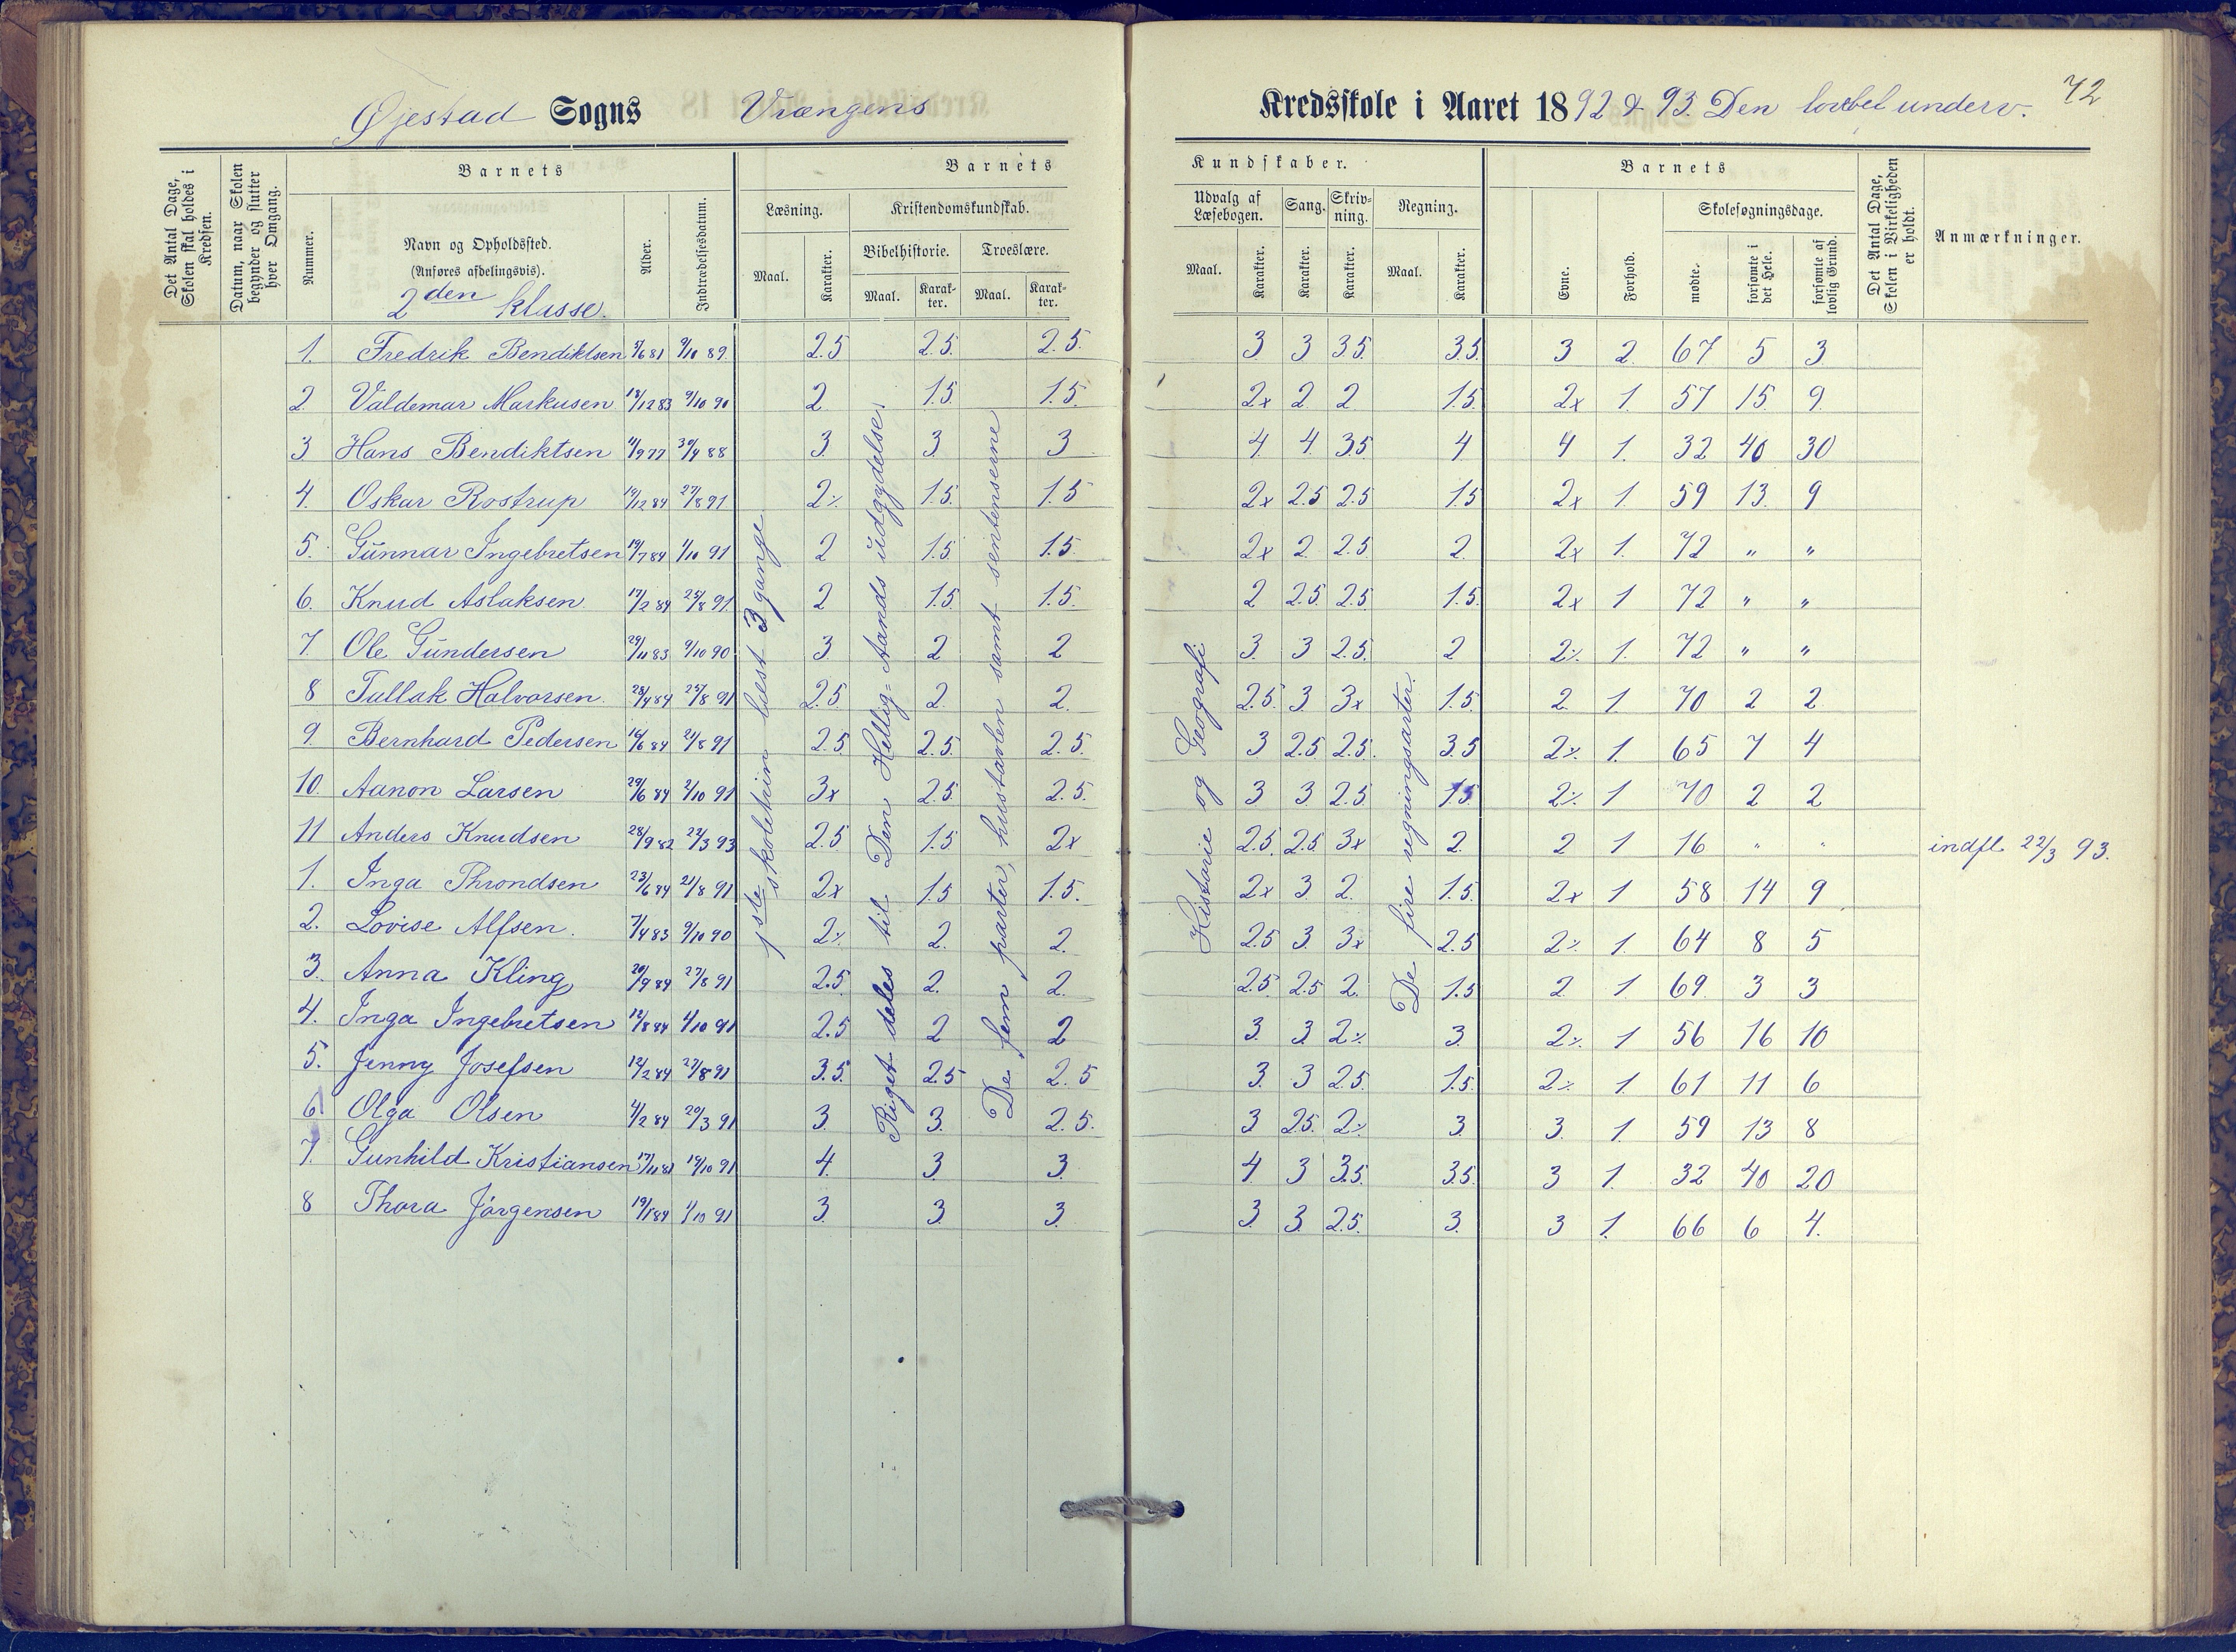 Øjestad Sogns Vrængens Kredsskole i Aaret 1892 & 93. Den lovbef underv. 72
Det Antal Dage, Skolen skal holdes i Kredsen.
Datum, naar Skolen begynder og slutter hver Omgang.
Barnets
Nummer.
Navn og Opholdssted.
(Anføres afdelingsvis).
2den klasse.
Alder.
Indtrædelsesdatum.
Barnets Kundskaber.
Læsning.
Maal.
Karakter.
Kristendomskundskab.
Bibelhistorie.
Maal.
Karakter.
Troeslære.
Maal.
Karakter.
Udvalg af Læsebogen.
Maal.
Karakter.
Sang.
Karakter.
Skrivning.
Karakter.
Regning.
Maal.
Karakter.
Barnets
Evne.
Forhold.
Skolesøgningsdage.
mødte.
forsømte i det Hele.
forsømte af lovlig Grund.
Det Antal Dage, Skolen i Virkeligheden er holdt.
Anmærkninger.
1ste skoletrin læst 3 gange
Riget deles til Den Hellig-Aands udgydelse.
De fem parter, hustavlen samt sentenserne
Historie og Geografi
De fire regningsarter.
1. Fredrik Bendiktsen 8/6 81 9/10 89. 2.5 2.5. 2.5. 3 3 3.5. 3.5. 3 2. 67 5 3
2. Valdemar Markusen 18/12 83 9/10 90 2. 1.5 1.5. 2x 2 2 1.5. 2x 1. 57 15. 9.
3 Hans Bendiktsen 11/9 77 30/4 88 3. 3. 3 4 4. 3.5 4 4 1. 32 40 30
4. Oskar Rostrup 19/12 84 27/8 91 2% 1.5. 1.5 2x 2.5 2.5 1.5 2x 1. 59 13. 9
5. Gunnar Ingebretsen 19/7 84 1/10 91 2 1.5. 1.5. 2x 2. 2.5 2. 2x 1. 72 " "
6. Knud Aslaksen. 17/2 84 25/8 91. 2 1.5. 1.5. 2 2.5. 2.5. 1.5. 2x 1 72 " "
7 Ole Gundersen 29/11 83 9/10 90 3. 2 2 3. 3 2.5. 2 2% 1. 72 " "
8 Tallak Halvorsen. 28/4 84 25/8 91 2.5. 2. 2. 2.5. 3 3x 1.5. 2. 1. 70 2 2
9. Bernhard Pedersen 16/6 84 21/8 91 2.5 2.5. 2.5. 3 2.5 2.5. 3.5 2% 1. 65 7 4
10. Aanon Larsen 29/6 84 2/10 91 3x 2.5. 2.5. 3 3 2.5 1.5. 2% 1 70 2 2
11 Anders Knudsen 28/9 82 22/3 93 2.5 1.5 2x 2.5. 2.5 3x 2. 2 1 16 " " indfl. 22/3 93.
1. Inga Throndsen 23/6 84 21/8 91 2x 1.5 1.5. 2x 3 2. 1.5. 2x 1 58 14 9
2. Lovise Alfsen. 7/4 83 9/10 90 2% 2. 2. 2.5 3. 3x 2.5 2% 1. 64 8 5
3. Anna Kling 20/9 84 27/8 91 2.5. 2. 2. 2.5. 2.5 2. 1.5 2. 1. 69. 3 3
4. Inga Ingebretsen 12/8 84 1/10 91 2.5 2 2 3. 3. 2% 3. 2% 1 56 16 10
5. Jenny Josefsen 12/2 84 27/8 91 3.5. 2.5 2.5 3. 3 2.5. 1.5. 2% 1. 61 11 6
6 Olga Olsen 4/2 84 20/3 91 3. 3. 2.5. 3 2.5. 2% 3. 3. 1 59 13 8
7. Gunhild Kristiansen 17/11 81 14/10 91 4. 3. 3. 4 3 3.5. 3.5. 3 1. 32 40 20
8 Thora Jörgensen 19/1 84 1/10 91 3. 3. 3. 3. 3. 2.5. 3. 3 1. 66 6 4.